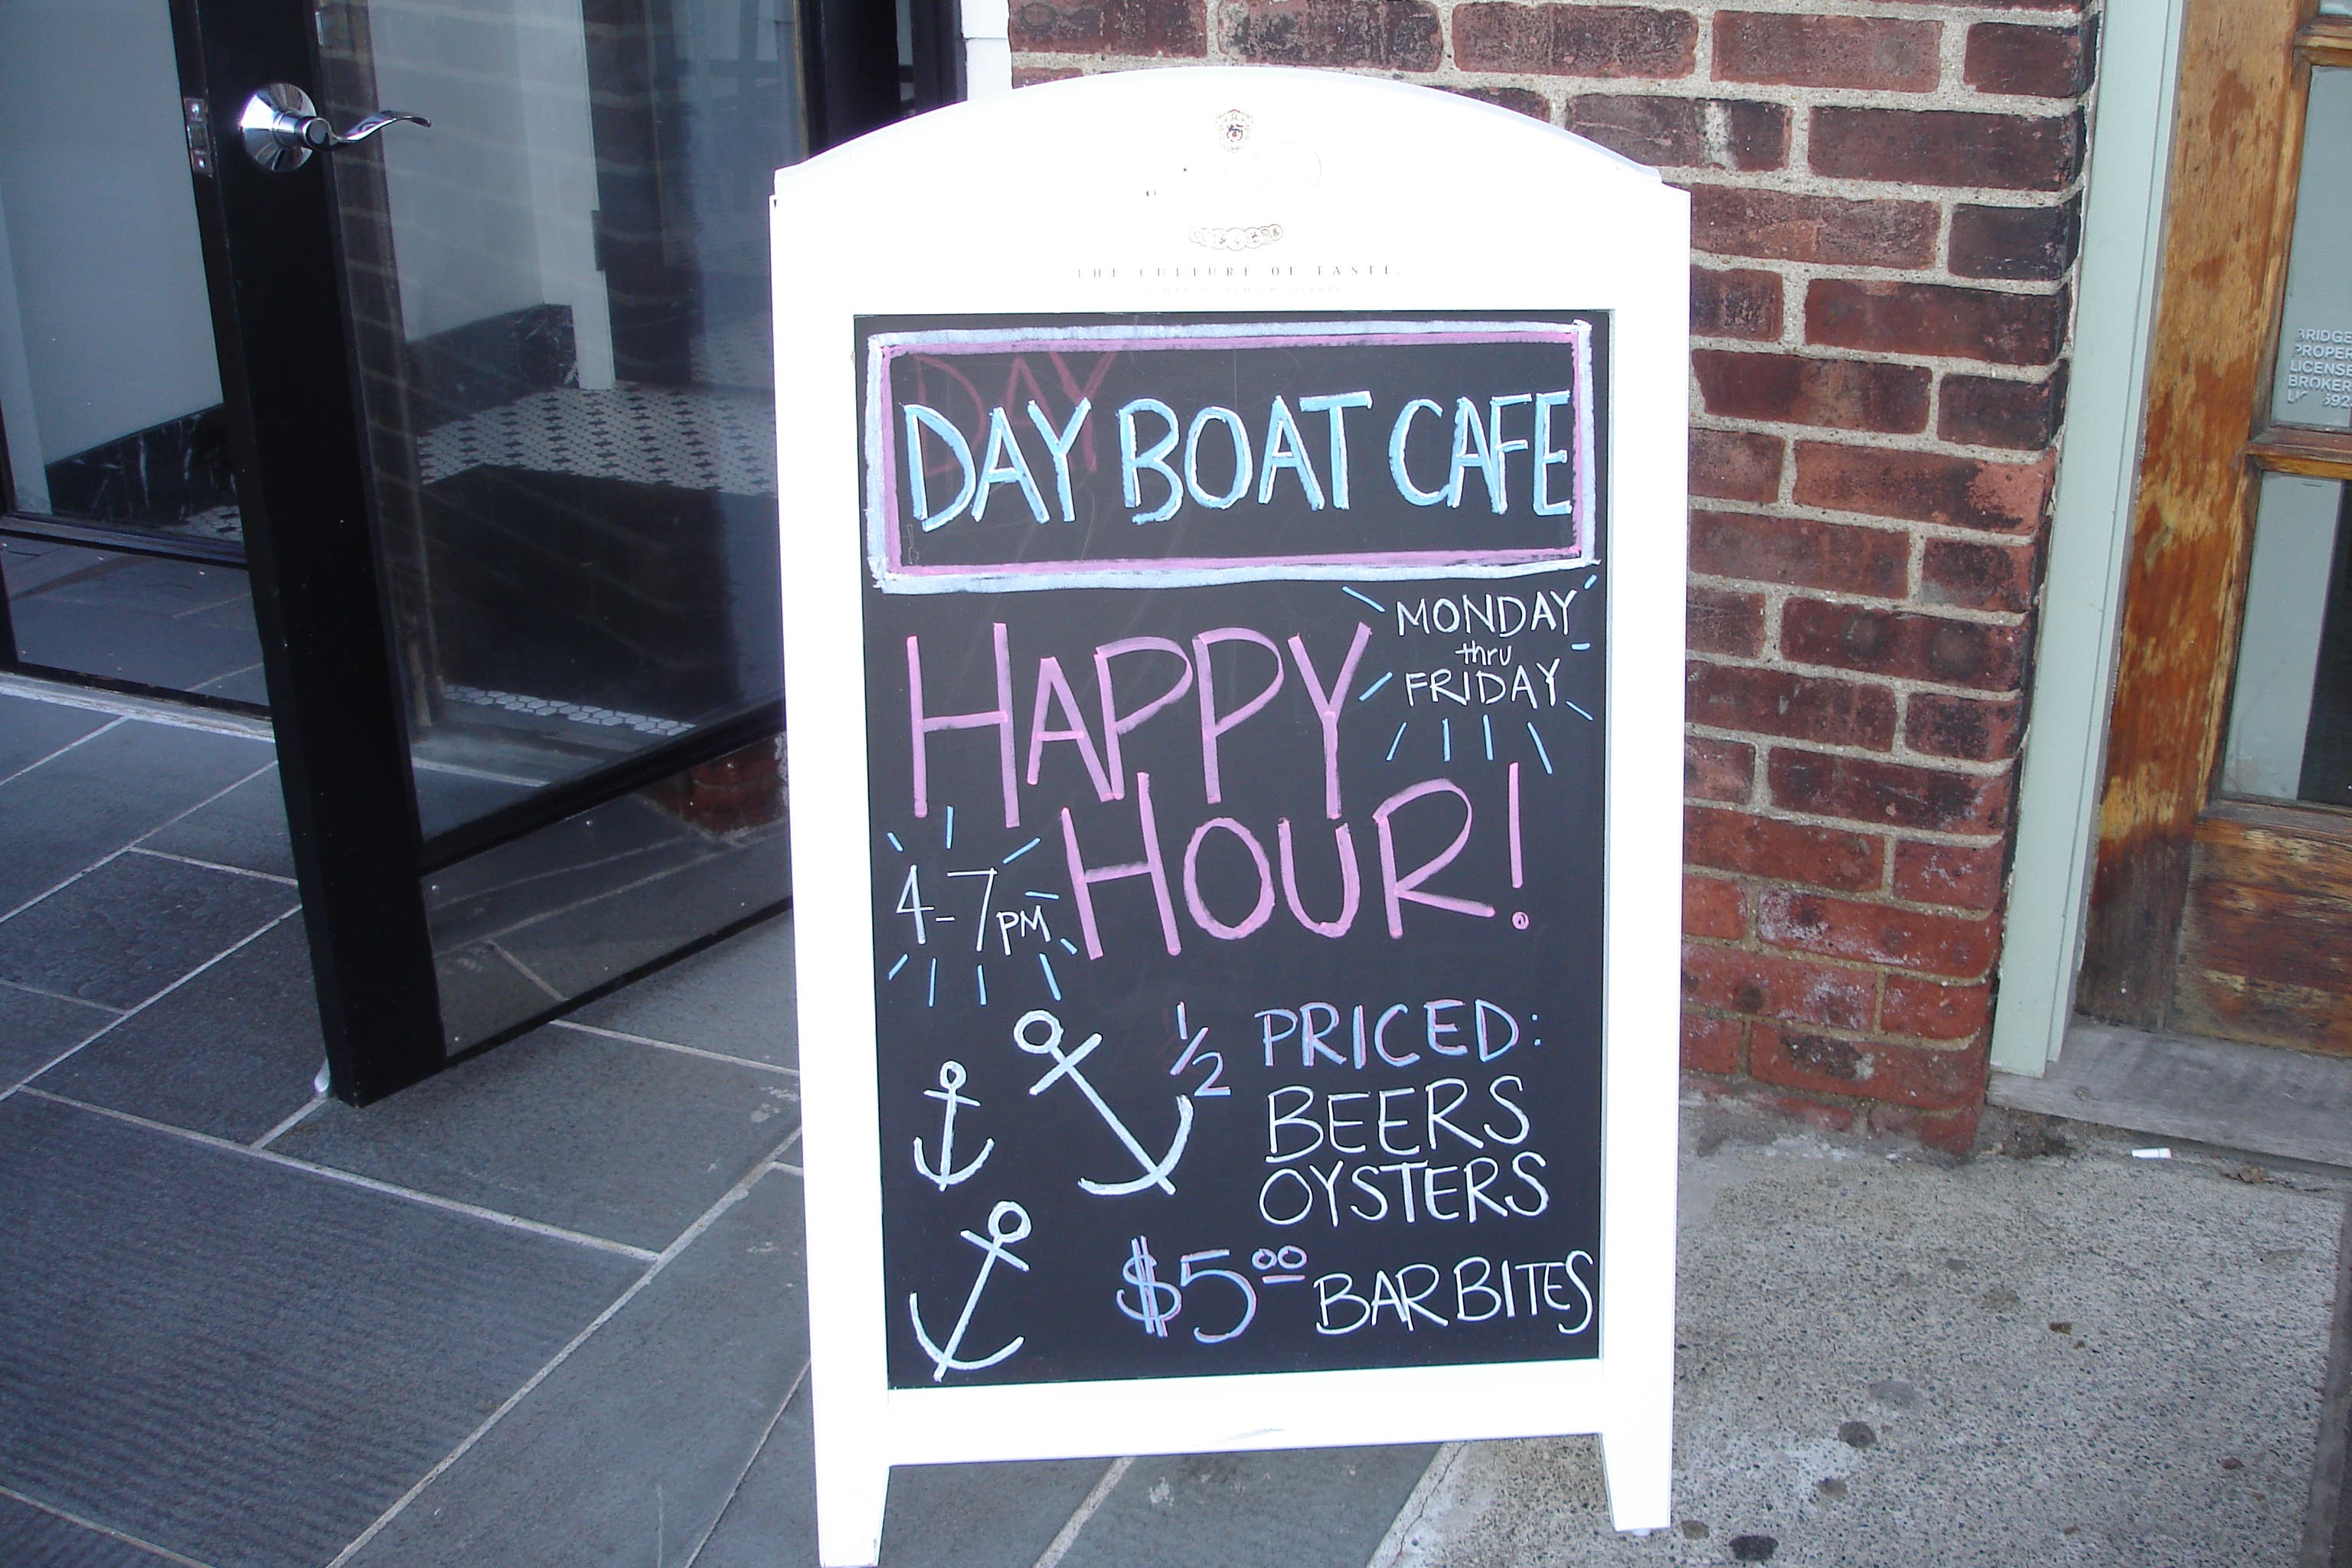 THE CULTURE OF TASTE
DAY
DAY BOAT CAFE
MONDAY
thru
FRIDAY
HAPPY
HOUR!
4-7PM
1/2 PRICED:
BEERS
OYSTERS
$5.00 BAR BITES
BRIDGE
PROPER
LICENSE
BROKER